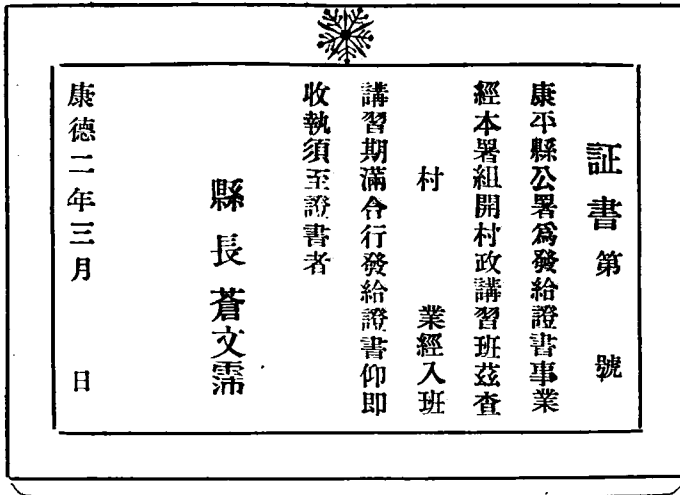 証書第　號
康平縣公署爲發給證書事業
經本署組開村政講習班茲查
村　業經入班
講習期滿合行發給證書仰即
收執須至證書者
縣長蒼文霈
康德二年三月　日